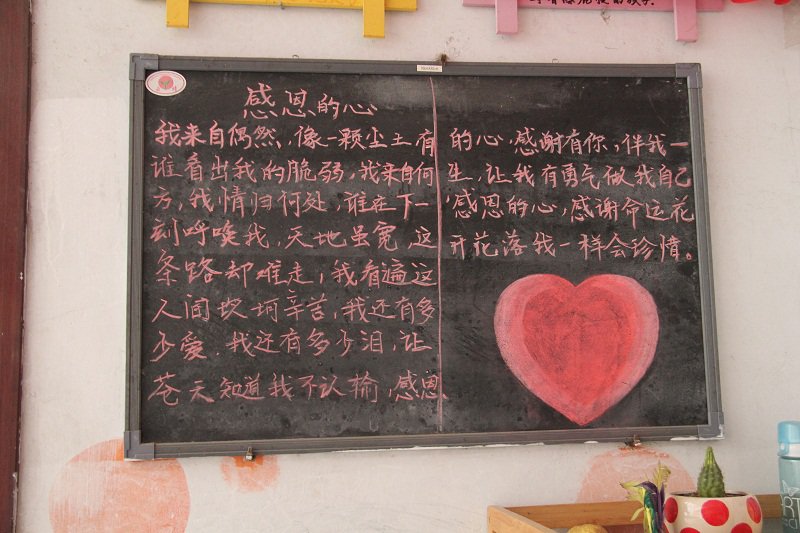 感恩的心
我来自偶然,像一颗尘土有
谁看出我的脆弱,我来自何
方,我情归何处,谁在下一
刻呼唤我,天地虽宽,这
条路却难走,我看遍这
人间坎坷辛苦,我还有多
少爱.我还有多少泪,让
苍天知道我不认输,感恩
的心,感谢有你,伴我一
生,让我有勇气做我自己
感恩的心,感谢命运花
开花落我一样会珍惜。